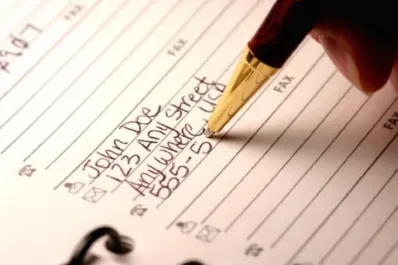 FAX
FAX
John Doe
123 Any Street
Anywhere, USA
555-5
FAX
FAX